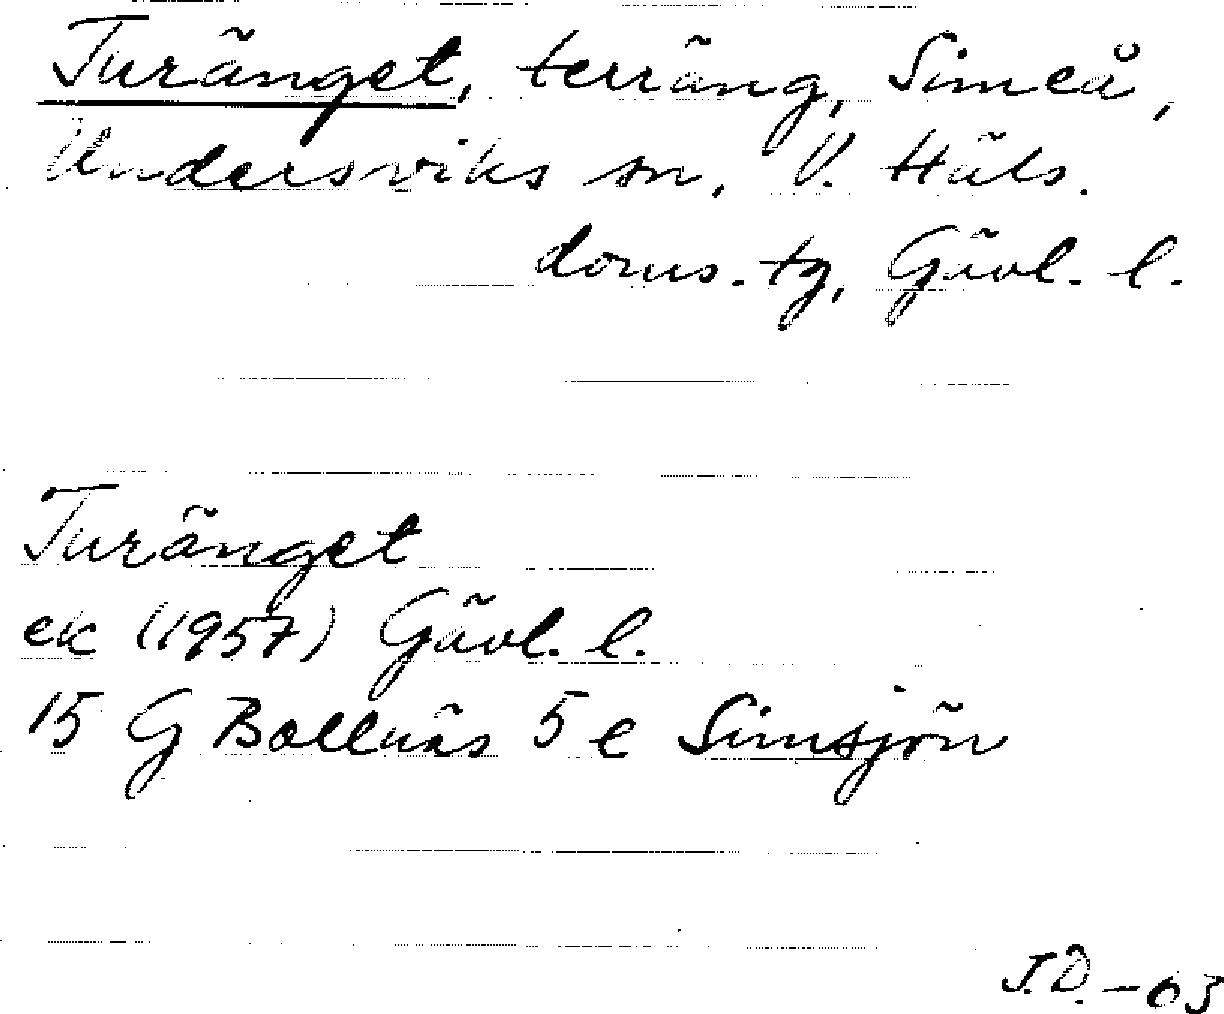 Turänget, terräng, Simeå,
Undersviks sn, V. Häls.
doms. tg, Gävl. l.
Turänget
ek (1957) Gävl. l.
15 G Bollnäs 5 e Simsjön
J.Ö. - 03